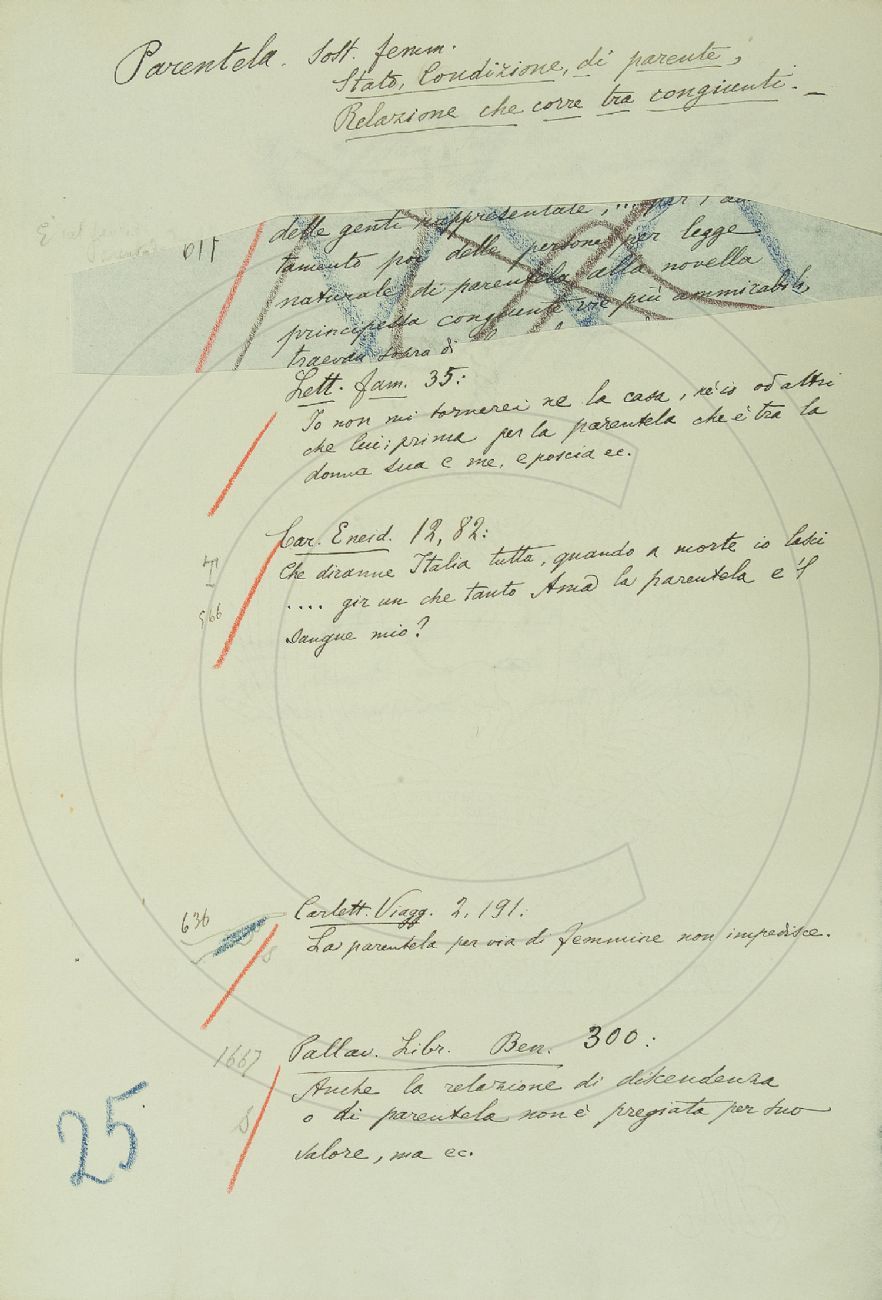 Parentela. Sost. femm.
Stato, Condizione, di parente;
Relazione che corre tra congiunti. _
delle genti rappresentate, ... per
tamento poi delle persone per legge
naturale di parentela alla novella
principessa congiunte vie più ammirabili,
traevan sopra di
Lett. fam. 35:
Io non mi tornerei ne la casa, nè io od altri
che lui; prima per la parentela che è tra la
donna sua e me, e poscia ec.
Car. Eneid. 12, 82:
Che diranne Italia tutta, quando a morte io lasci
.... gir un che tanto Ama la parentela e 'l
sangue mio?
566
636
Carlett. Viagg. 2, 191:
La parentela per via di femmine non impedisce.
1667
Pallav. Libr. Ben. 300:
Anche la relazione di discendenza
o di parentela non è pregiata per suo
valore, ma ec.
25